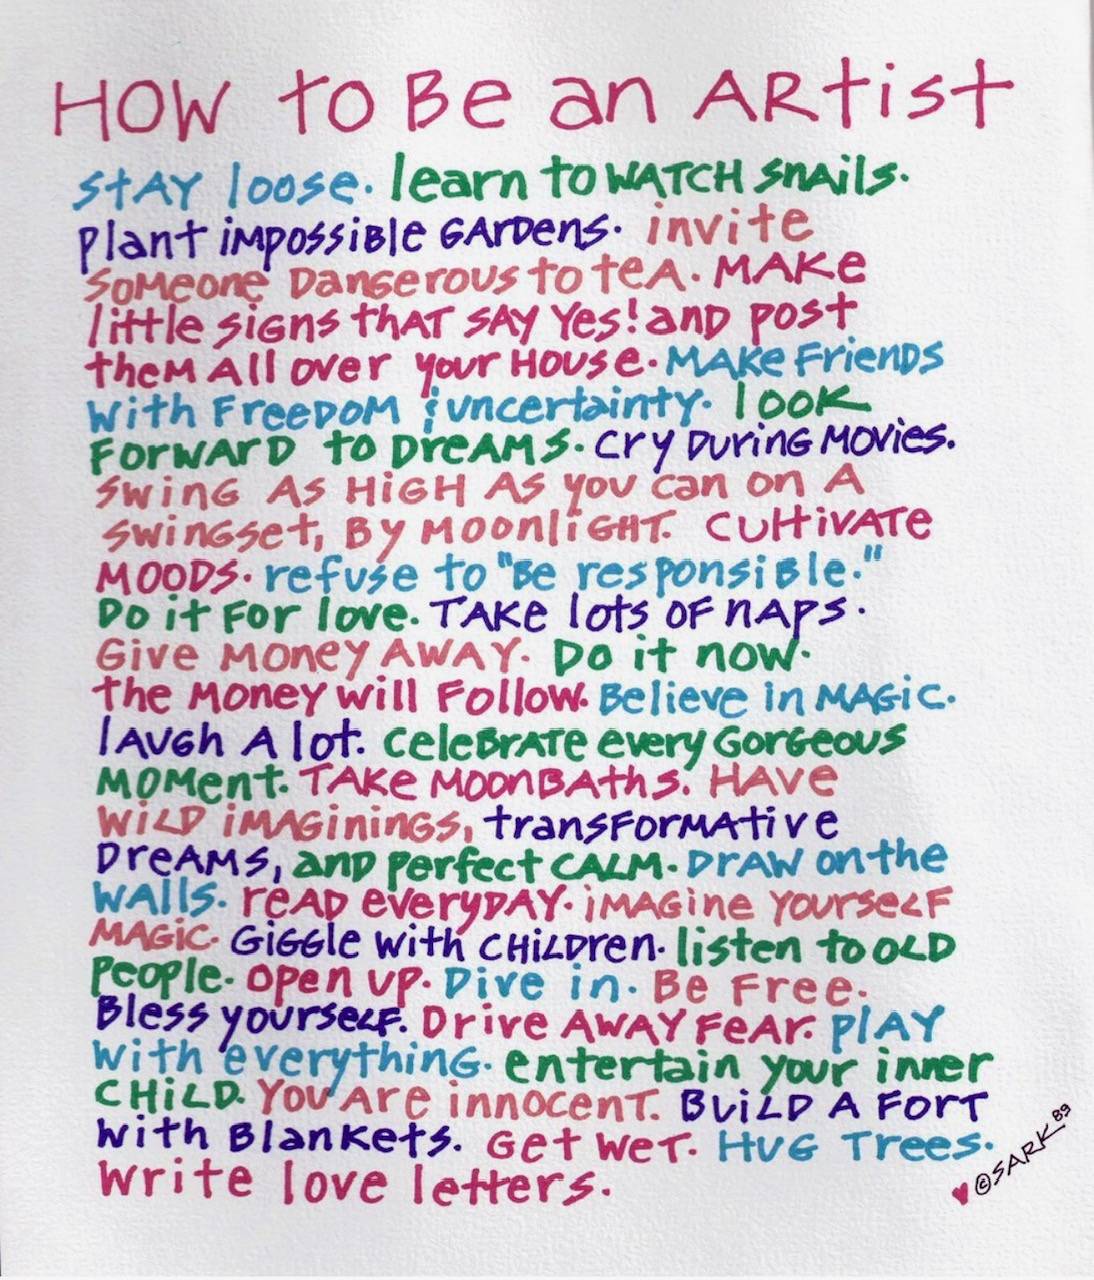 HOW to Be an ARtist
STAY loose. learn to WATCH SNAils.
plant iMPOSSiBle GARDens. invite
SoMeone DanGerous to teA. MAKe
little SiGns thAT SAY Yes! anD post
theM All over your House. MAKe Friends
With FreeDOM & uncertainty. look
FORWARD to DreAMS. Cry During Movies.
SWinG AS HiGH AS you can on A
SWinGset, By Moonli​GHT. Cultivate
MOODS. refuse to "Be responsible."
Do it For love. TAKe lots OF nAps.
Give Money AWAY. Do it now.
the Money will Follow. Believe in MAGic.
lAuGh A lot. CeleBrATe every GorGeous
MOMent. TAKe MoonBAths. HAVe
WilD iMAGininGs, transFORMAtive
DreAMS, anD perfect CALM. DrAW on the
WAlls. reAD everyDAY. iMAGine YourseLF
MAGic. GiGGle with CHilDren. listen to OLD
people. Open up. Dive in. Be Free.
Bless yourseLF. Drive AWAY FeAr. plAY
With everythinG. entertain your inner
CHiLD. You Are innocent. BuiLD A FOrT
With BlanKets. Get Wet. HuG Trees.
Write love letters.
©SARK 89